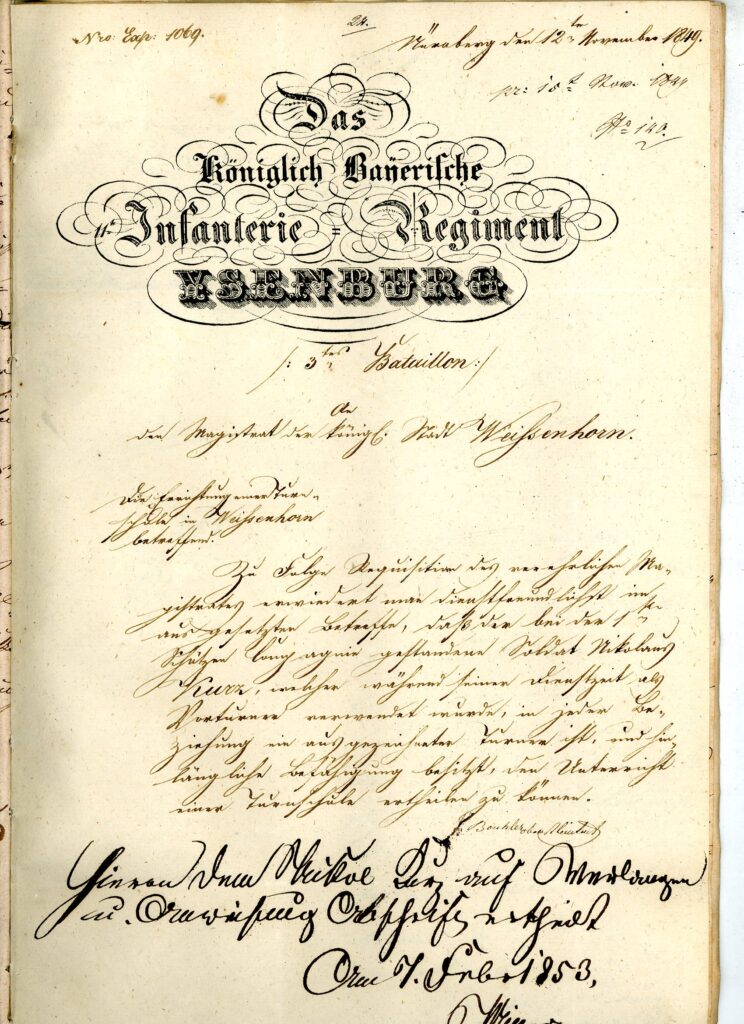 Nro: Exp: 1069.
24.
Nürnberg den 12ten November 1849.
pr: 15t Nov. 1849
No 140.
Das
Königlich Bayerische
11te Infanterie-Regiment
YSENBURG
/: 3tes Bataillon :/
An
den Magistrat der königl. Stadt Weißenhorn.
Die Errichtung einer Turn-
schule in Weißenhorn
betreffend.
Zu Folge Requisition des verehrlichen Ma-
gistrates erwiedert man dienstfreundlichst im
aus gesetzten Betreffe, daß der bei der 1ten
Schützen Compagnie gestandene Soldat Nikolaus
Kurz, welcher während seiner Dienstzeit als
Vorturner verwendet wurde, in jeder Be-
ziehung ein ausgezeichneter Turner ist, und hin-
längliche Befähigung besitzt, den Unterricht
einer Turnschule ertheilen zu können.
Hievon dem Nikol Kurz auf Verlangen
u. Anweisung Abschrift ertheilt
Am 7. Febr 1853.